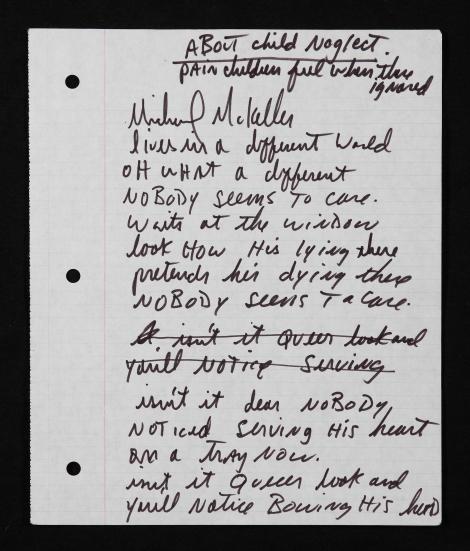 ABOUT child Neglect.
PAIN children feel when there
ignored
Michael McKellar
lives in a different World
OH WHAT a different
NOBODY seems To care.
Waits at the WINDOW
look How His lying there
pretends he's dying there
NOBODY seems Ta Care.
isn't it Queer look and
you'll NOTICE Serving
isn't it dear NOBODY
NOTICED SERVING HIS heart
on a TRAY NOW.
isn't it Queer look and
you'll Notice Bowing His head